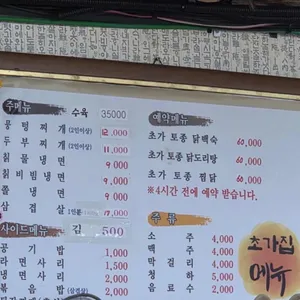 주메뉴
수육 35000
풍경찌개 (2인이상) 12,000
두부찌개 (2인이상) 11,000
칡물냉면 9,000
칡비빔냉면 9,000
쫄냉면 9,000
삼겹살 1인분 17,000
사이드메뉴
공기밥 1,000
라면사리 1,500
냉면사리 2,000
볶음밥 (삼겹살)
예약메뉴
초가 토종 닭백숙 60,000
초가 토종 닭도리탕 60,000
초가 토종 찜닭 60,000
※4시간 전에 예약 받습니다.
주류
소주 4,000
맥주 4,000
막걸리 4,000
청하 5,000
음료수 2,000
초가집
메뉴